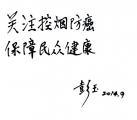 关注控烟防癌
保障民众健康
彭玉 2014.9